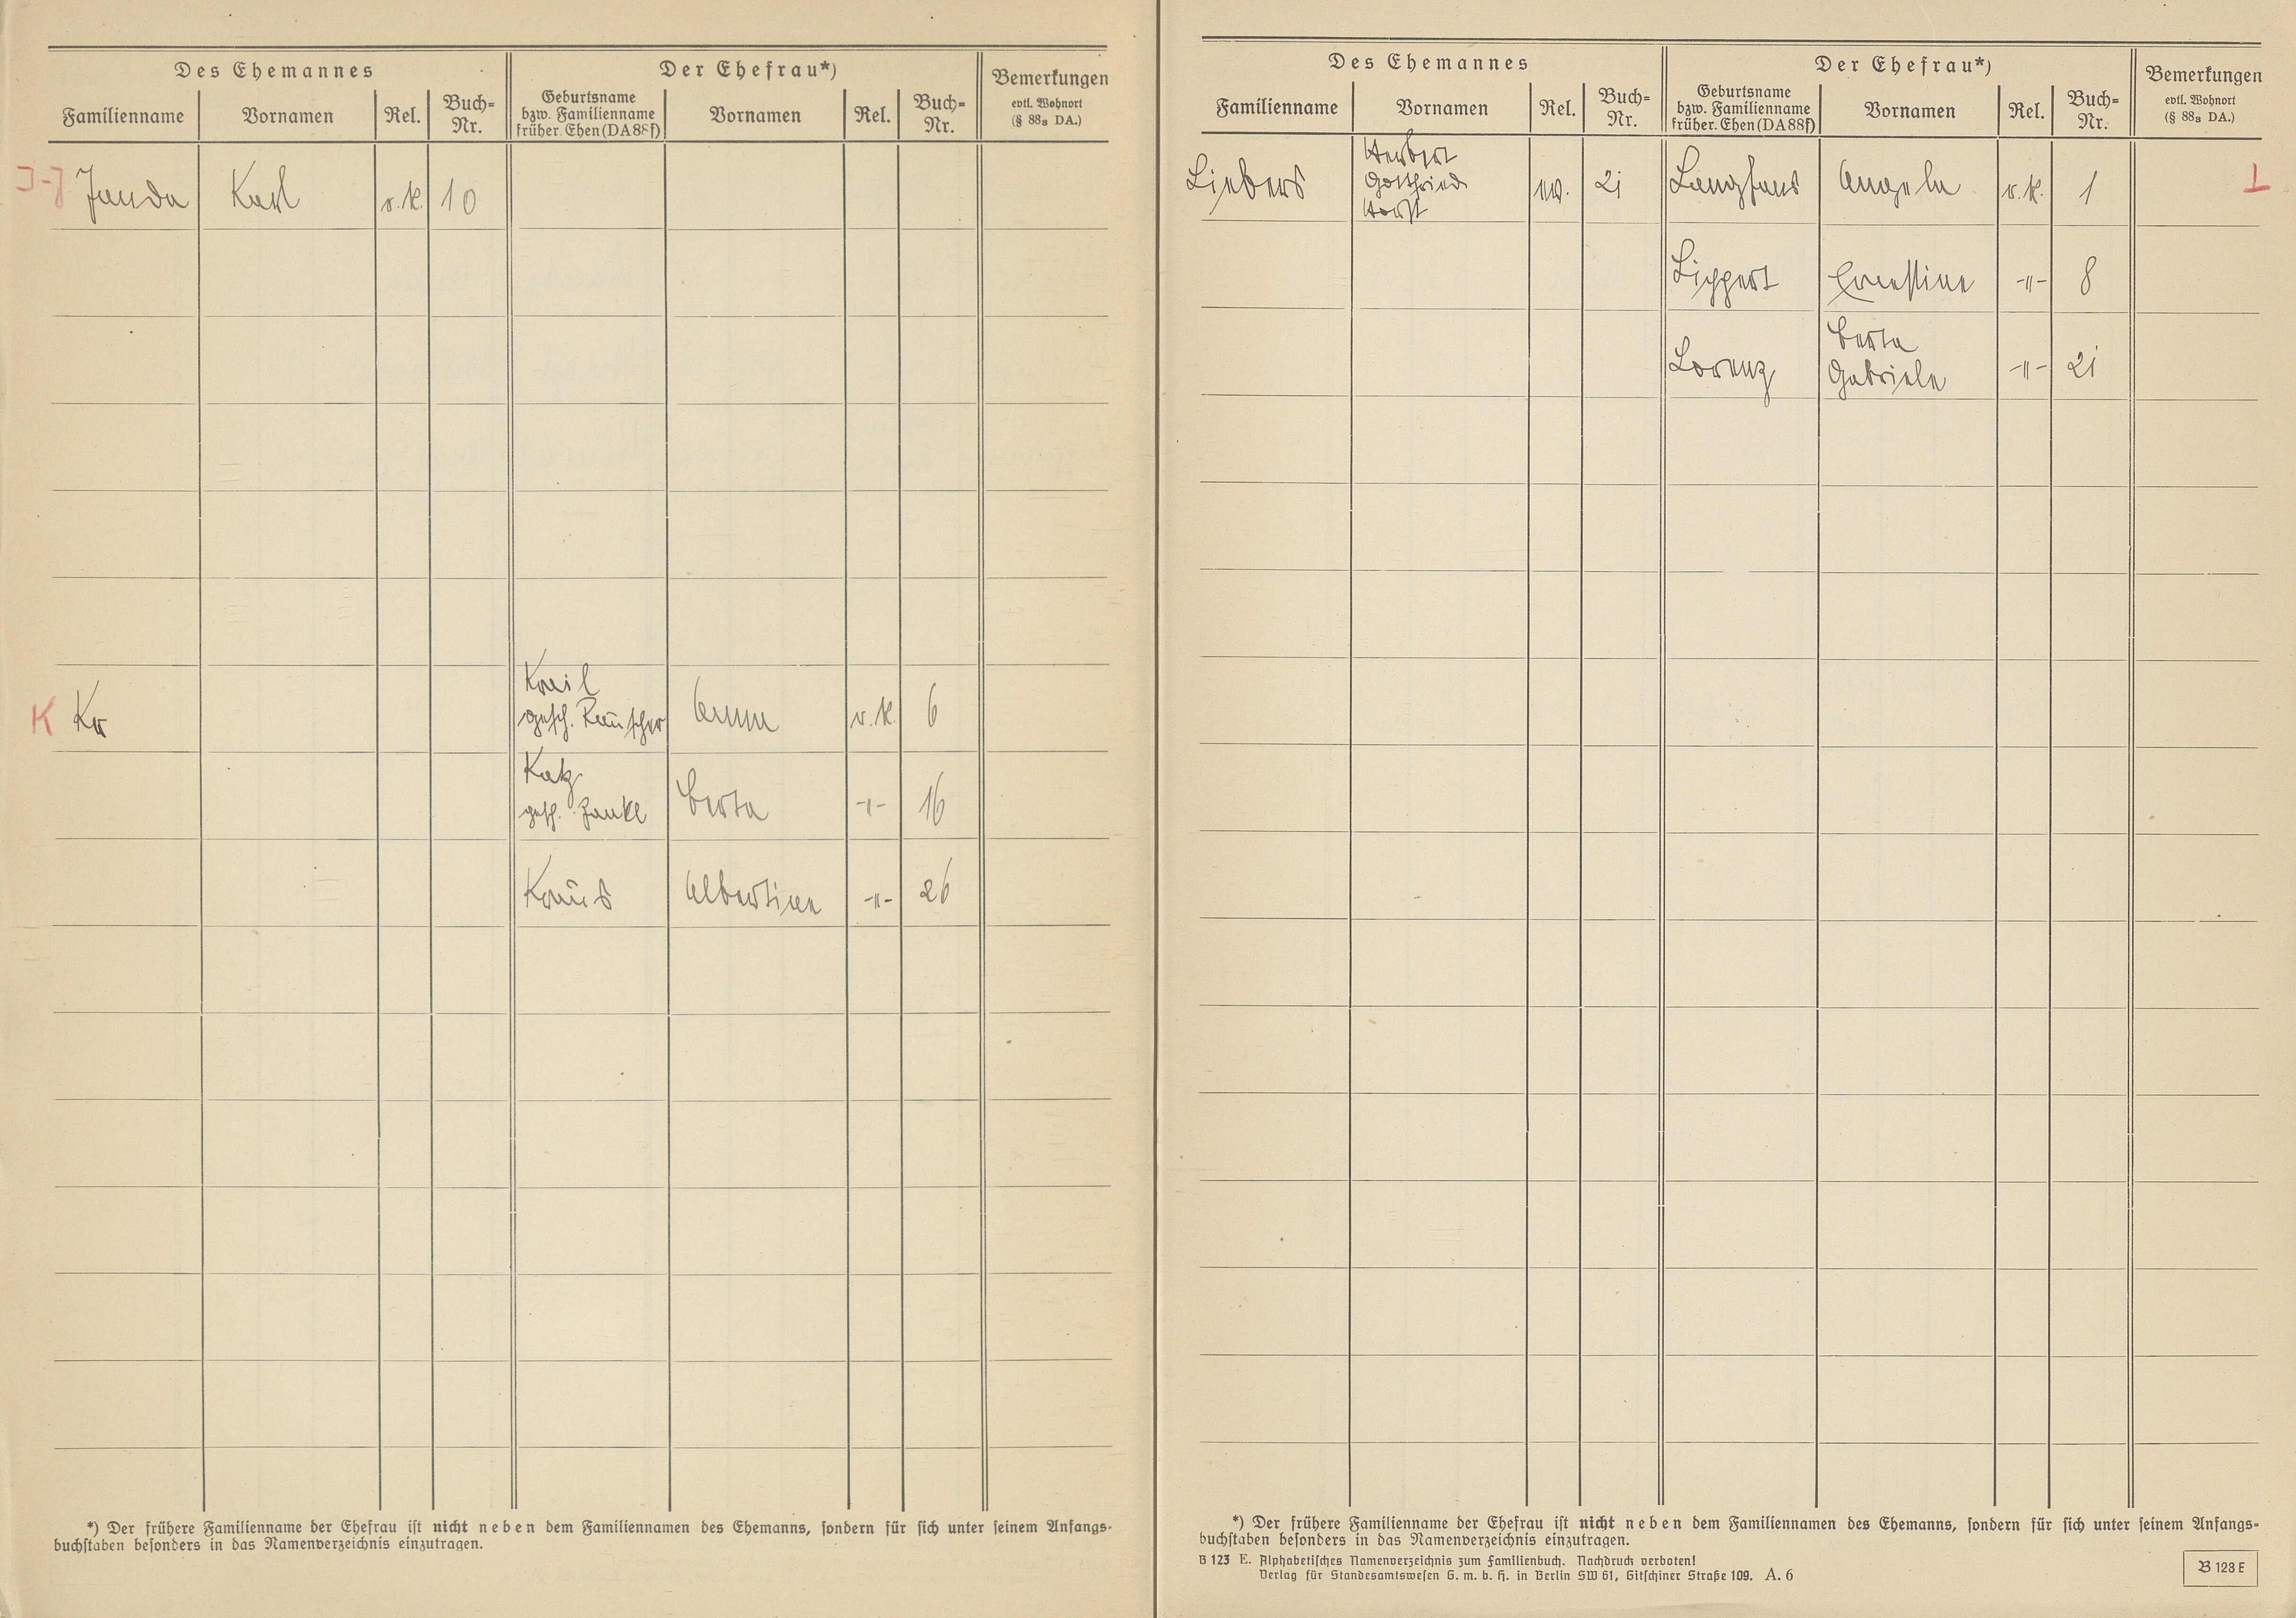 Des Ehemannes
Der Ehefrau*)
Bemerkungen
evtl. Wohnort
(§ 88a DA.)
Familienname
Vornamen
Rel.
Buch-
Nr.
Geburtsname
bzw. Familienname
früher. Ehen (DA 88f)
Vornamen
Rel.
Buch-
Nr.
J-J Janda Karl r. k. 10
Kreil
K Kr gesch. Rauscher Anna r. k. 6
Katz
gesch. Janke Berta -"- 16
Kraus Albertine -"- 26
*) Der frühere Familienname der Ehefrau ist nicht neben dem Familiennamen des Ehemanns, sondern für sich unter seinem Anfangs-
buchstaben besonders in das Namenverzeichnis einzutragen.
Des Ehemannes
Der Ehefrau*)
Bemerkungen
evtl. Wohnort
(§ 88a DA.)
Familienname
Vornamen
Rel.
Buch-
Nr.
Geburtsname
bzw. Familienname
früher. Ehen (DA 88f)
Vornamen
Rel.
Buch-
Nr.
Herbert
Liebers Gottfried ev. 21 Langhans Angela r. k. 1 L
Horst
Lippert Ernestine -"- 8
Berta
Lorenz Gabriele -"- 21
*) Der frühere Familienname der Ehefrau ist nicht neben dem Familiennamen des Ehemanns, sondern für sich unter seinem Anfangs-
buchstaben besonders in das Namenverzeichnis einzutragen.
B 123 E. Alphabetisches Namenverzeichnis zum Familienbuch. Nachdruck verboten!
Verlag für Standesamtswesen G. m. b. H. in Berlin SW 61, Gitschiner Straße 109. A. 6
B 123 E